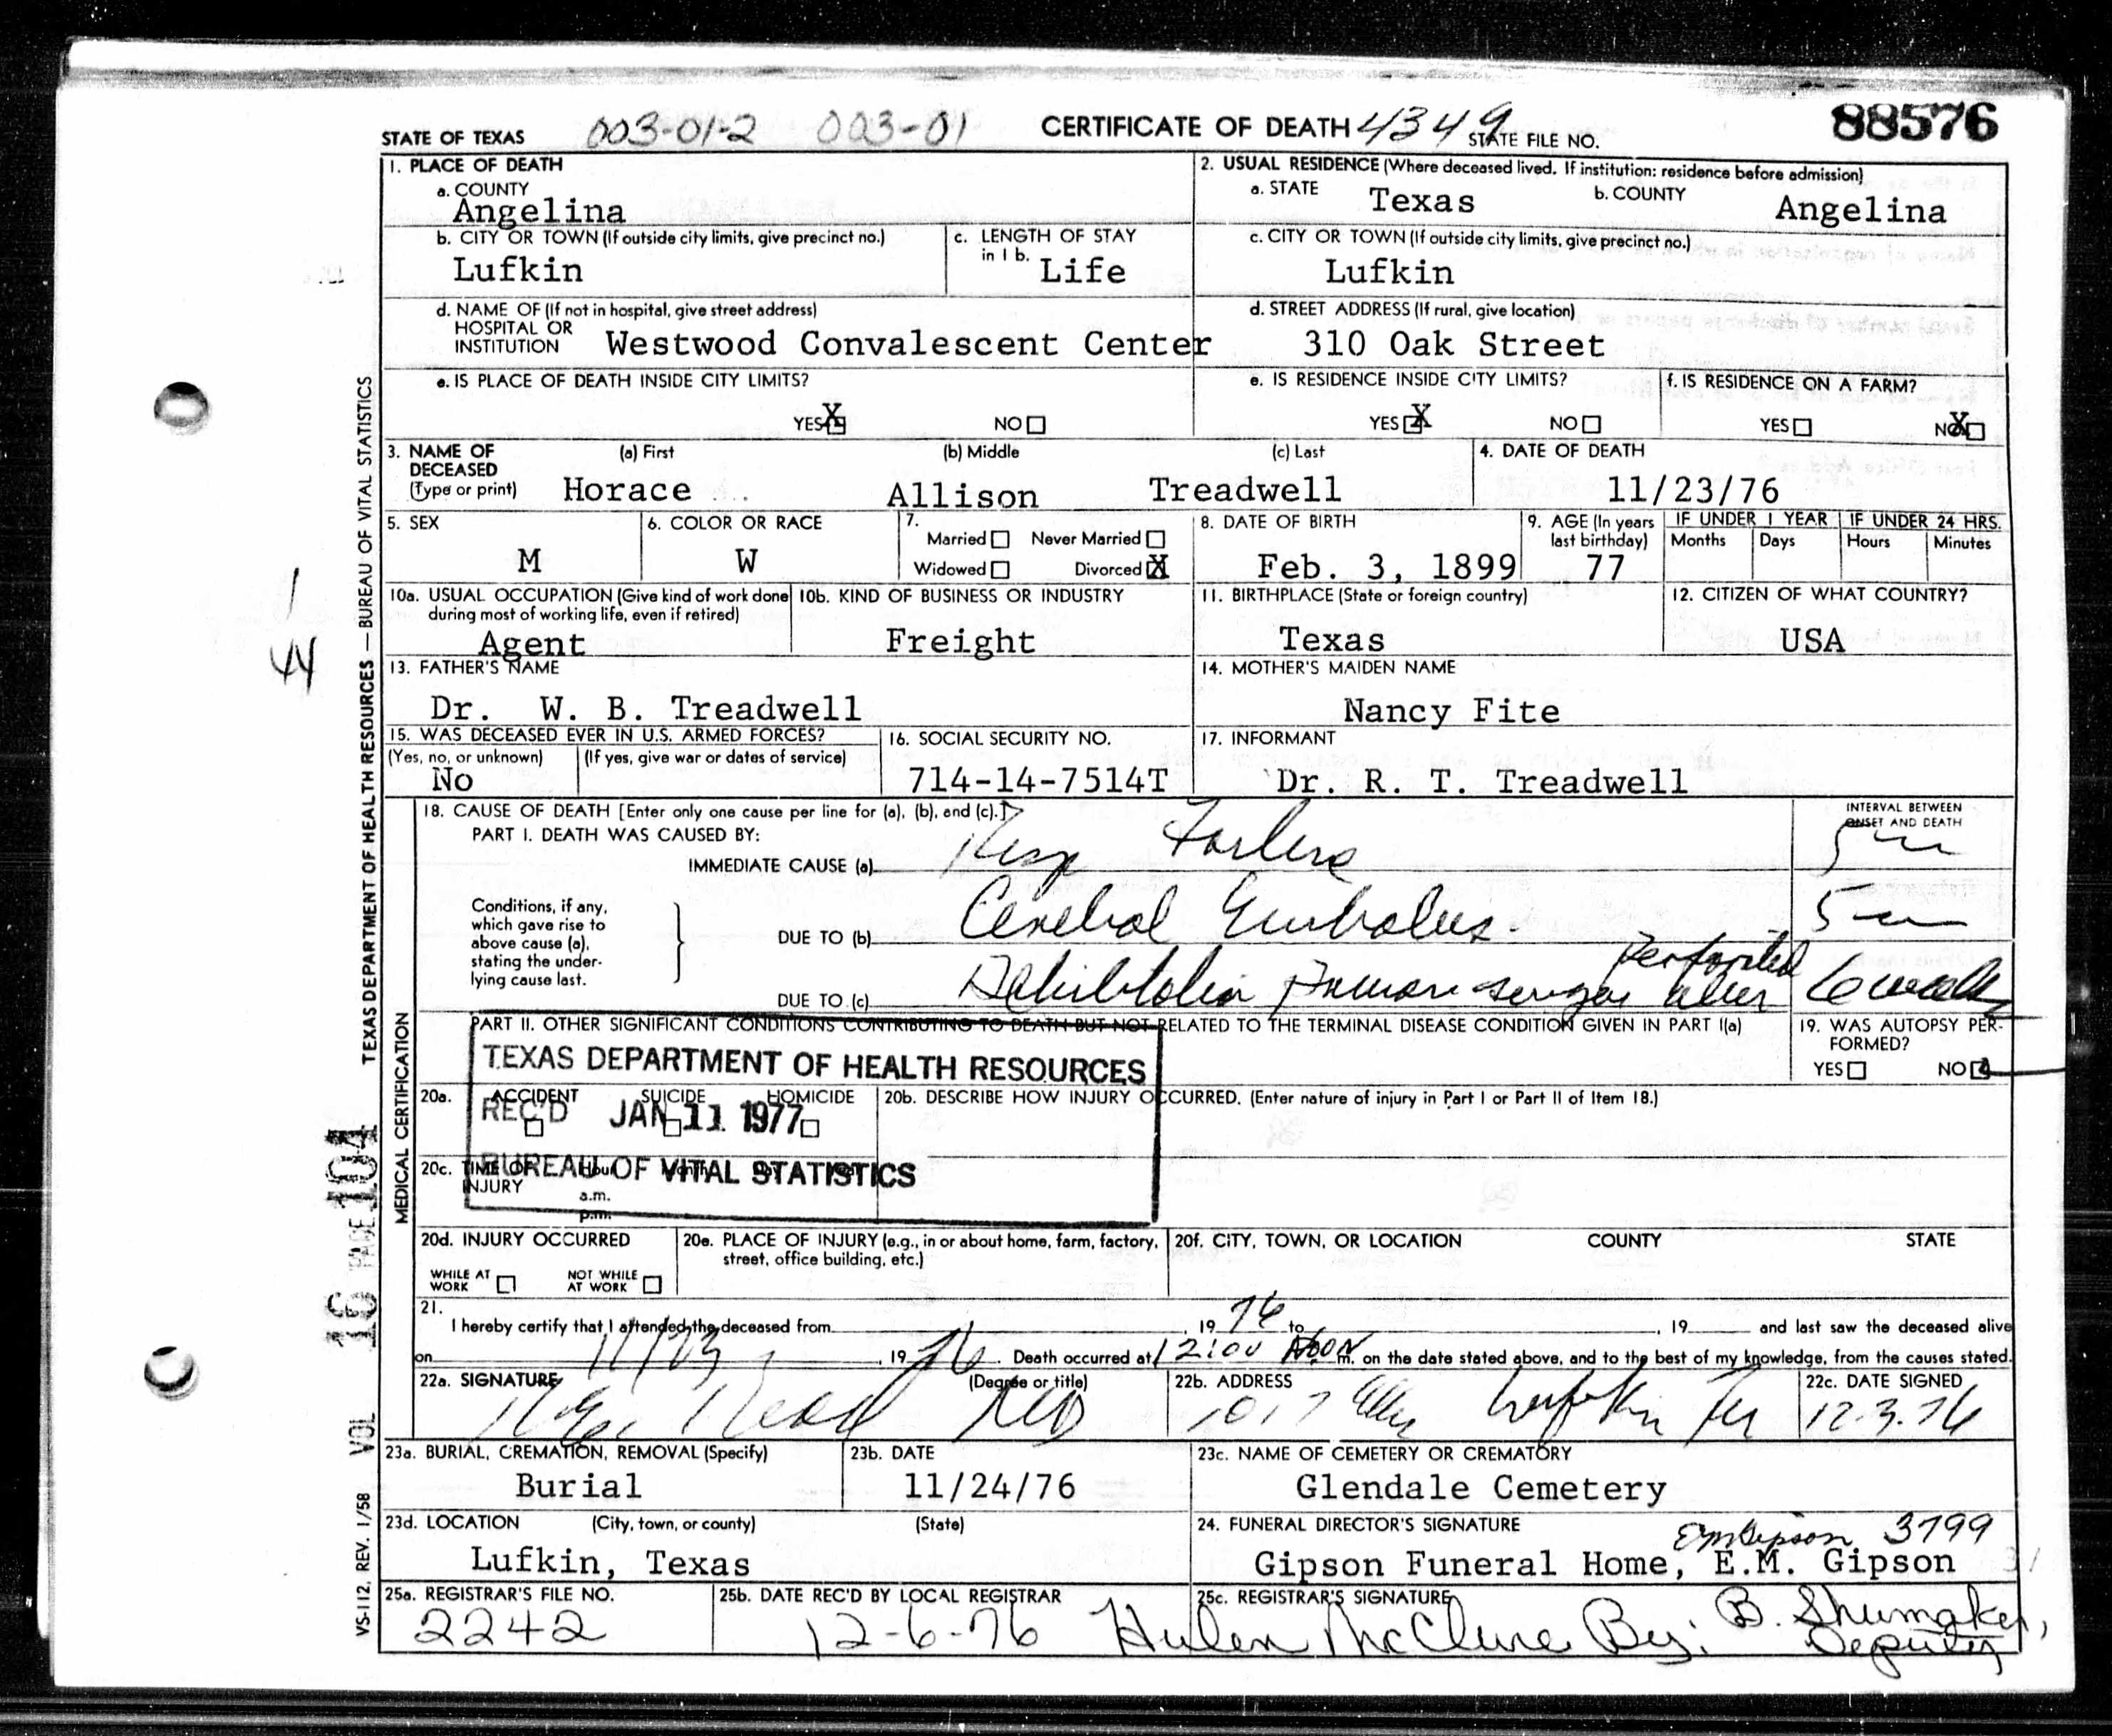 STATE OF TEXAS 003-01-2 003-01 CERTIFICATE OF DEATH 4349 STATE FILE NO. 88576
1. PLACE OF DEATH
a. COUNTY
Angelina
2. USUAL RESIDENCE (Where deceased lived. If institution: residence before admission)
a. STATE Texas b. COUNTY Angelina
b. CITY OR TOWN (If outside city limits, give precinct no.)
Lufkin
c. LENGTH OF STAY in 1 b.
Life
c. CITY OR TOWN (If outside city limits, give precinct no.)
Lufkin
d. NAME OF (If not in hospital, give street address)
HOSPITAL OR
INSTITUTION Westwood Convalescent Center
d. STREET ADDRESS (If rural, give location)
310 Oak Street
e. IS PLACE OF DEATH INSIDE CITY LIMITS?
YES X NO
e. IS RESIDENCE INSIDE CITY LIMITS?
YES X NO
f. IS RESIDENCE ON A FARM?
YES NO X
3. NAME OF DECEASED (Type or print)
(a) First (b) Middle (c) Last
Horace Allison Treadwell
4. DATE OF DEATH
11/23/76
5. SEX
M
6. COLOR OR RACE
W
7.
Married Never Married
Widowed Divorced X
8. DATE OF BIRTH
Feb. 3, 1899
9. AGE (In years last birthday)
77
IF UNDER 1 YEAR IF UNDER 24 HRS.
Months Days Hours Minutes
10a. USUAL OCCUPATION (Give kind of work done
during most of working life, even if retired)
Agent
10b. KIND OF BUSINESS OR INDUSTRY
Freight
11. BIRTHPLACE (State or foreign country)
Texas
12. CITIZEN OF WHAT COUNTRY?
USA
13. FATHER'S NAME
Dr. W. B. Treadwell
14. MOTHER'S MAIDEN NAME
Nancy Fite
15. WAS DECEASED EVER IN U.S. ARMED FORCES?
(Yes, no, or unknown) (If yes, give war or dates of service)
No
16. SOCIAL SECURITY NO.
714-14-7514T
17. INFORMANT
Dr. R. T. Treadwell
18. CAUSE OF DEATH [Enter only one cause per line for (a), (b), and (c).]
PART I. DEATH WAS CAUSED BY:
INTERVAL BETWEEN
ONSET AND DEATH
IMMEDIATE CAUSE (a) Resp Failure 5
Conditions, if any,
which gave rise to
above cause (a),
stating the under-
lying cause last.
DUE TO (b) Cerebral Embolus. 5
DUE TO (c) Perforated ulcer 6 weeks
PART II. OTHER SIGNIFICANT CONDITIONS CONTRIBUTING TO DEATH BUT NOT RELATED TO THE TERMINAL DISEASE CONDITION GIVEN IN PART I(a)
19. WAS AUTOPSY PER-
FORMED?
YES NO
TEXAS DEPARTMENT OF HEALTH RESOURCES
REC'D JAN 11 1977
BUREAU OF VITAL STATISTICS
20a. ACCIDENT SUICIDE HOMICIDE
20b. DESCRIBE HOW INJURY OCCURRED. (Enter nature of injury in Part I or Part II of Item 18.)
20c. TIME OF
INJURY
Hour
a.m.
p.m.
20d. INJURY OCCURRED
WHILE AT
WORK
NOT WHILE
AT WORK
20e. PLACE OF INJURY (e.g., in or about home, farm, factory,
street, office building, etc.)
20f. CITY, TOWN, OR LOCATION COUNTY STATE
21.
I hereby certify that I attended the deceased from , 19 76 to , 19 and last saw the deceased alive
on 11/23, 1976. Death occurred at 12:00 Noon m. on the date stated above, and to the best of my knowledge, from the causes stated.
22a. SIGNATURE (Degree or title)
MD
22b. ADDRESS
1017 Lufkin Tex
22c. DATE SIGNED
12.3.76
23a. BURIAL, CREMATION, REMOVAL (Specify)
Burial
23b. DATE
11/24/76
23c. NAME OF CEMETERY OR CREMATORY
Glendale Cemetery
23d. LOCATION (City, town, or county) (State)
Lufkin, Texas
24. FUNERAL DIRECTOR'S SIGNATURE
EM Gipson 3799
Gipson Funeral Home, E.M. Gipson
25a. REGISTRAR'S FILE NO.
2242
25b. DATE REC'D BY LOCAL REGISTRAR
12-6-76
25c. REGISTRAR'S SIGNATURE
Hulen McClure By: B. Shumaker,
Deputy
TEXAS DEPARTMENT OF HEALTH RESOURCES — BUREAU OF VITAL STATISTICS
MEDICAL CERTIFICATION
VS-112, REV. 1/58
VOL 16 PAGE 104
1
44